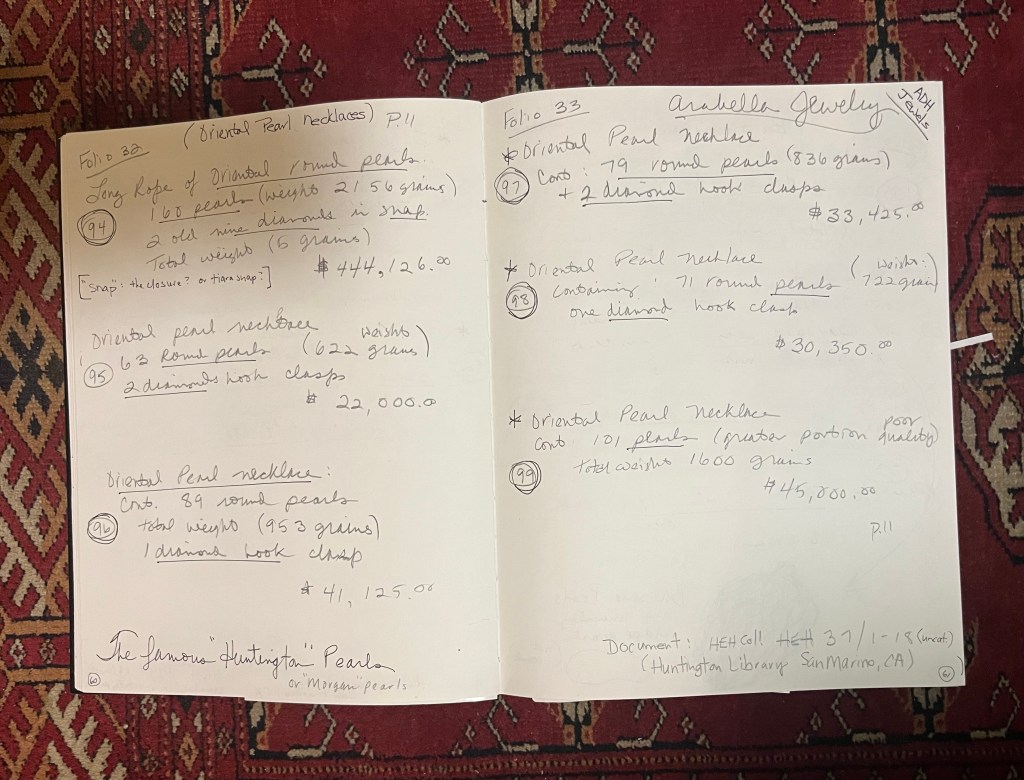 Folio 32 (Oriental Pearl necklaces) P.11
Long Rope of Oriental round pearls.
160 pearls (weight 2156 grains)
(94) 2 old mine diamonds in snap.
Total weight (5 grains)
$444,126.00
["Snap": the closure? or tiara snap?]
Oriental pearl necklace
63 Round pearls (622 grains) weight
(95) 2 diamonds hook clasps
$22,000.00
Oriental Pearl necklace:
Cont. 89 round pearls
(96) total weight (953 grains)
1 diamond hook clasp
$41,125.00
The famous "Huntington" Pearls
or "Morgan" pearls
(60)
Folio 33 Arabella Jewelry
ADH Jewels
* Oriental Pearl Necklace
(97) Cont: 79 round pearls (836 grains)
+ 2 diamond hook clasps
$33,425.00
* Oriental Pearl Necklace (weight:
(98) containing 71 round pearls 722 grain)
one diamond hook clasp
$30,350.00
* Oriental Pearl Necklace
Cont. 101 pearls (greater portion poor quality)
(99) total weight 1600 grains
$45,000.00
P.11
Document: HEH Coll. HEH 37/1-18 (uncat.)
(Huntington Library San Marino, CA)
(61)